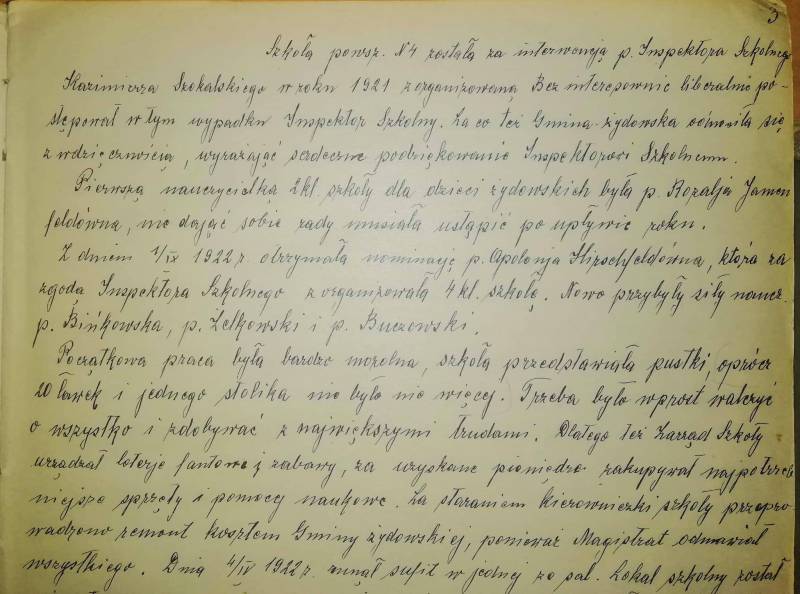 3
Szkoła powsz. N4 została za interwencją p. Inspektora Szkolnego
Kazimierza Szokalskiego w roku 1921 zorganizowaną. Bez interesownie liberalnie po-
stępował w tym wypadku Inspektor Szkolny. Za co też Gmina żydowska odniosła się
z wdzięcznością, wyrażając serdeczne podziękowanie Inspektorowi Szkolnemu.
Pierwszą nauczycielką 2 kl. szkoły dla dzieci żydowskich była p. Rozalja Jamen
feldówna, nie dając sobie rady musiała ustąpić po upływie roku.
Z dniem 1/IX 1922 r. otrzymała nominację p. Apolonja Hirschfeldówna, która za
zgodą Inspektora Szkolnego zorganizowała 4 kl. szkołę. Nowo przybyły siły naucz.
p. Bińkowska, p. Zelkowski i p. Buczowski.
Początkowa praca była bardzo mozolna, szkoła przedstawiała pustki, oprócz
20 ławek i jednego stolika nie było nic więcej. Trzeba było wprost walczyć
o wszystko i zdobywać z największymi trudami. Dlatego też Zarząd Szkoły
urządzał loterje fantowe i zabawy, za uzyskane pieniądze zakupywał najpotrzeb
niejsze sprzęty i pomoce naukowe. Za staraniem kierowniczki szkoły przepro
wadzono remont kosztem Gminy żydowskiej, ponieważ Magistrat odmawiał
wszystkiego. Dnia 4/IV 1922 r. runął sufit w jednej ze sal. Lokal szkolny został